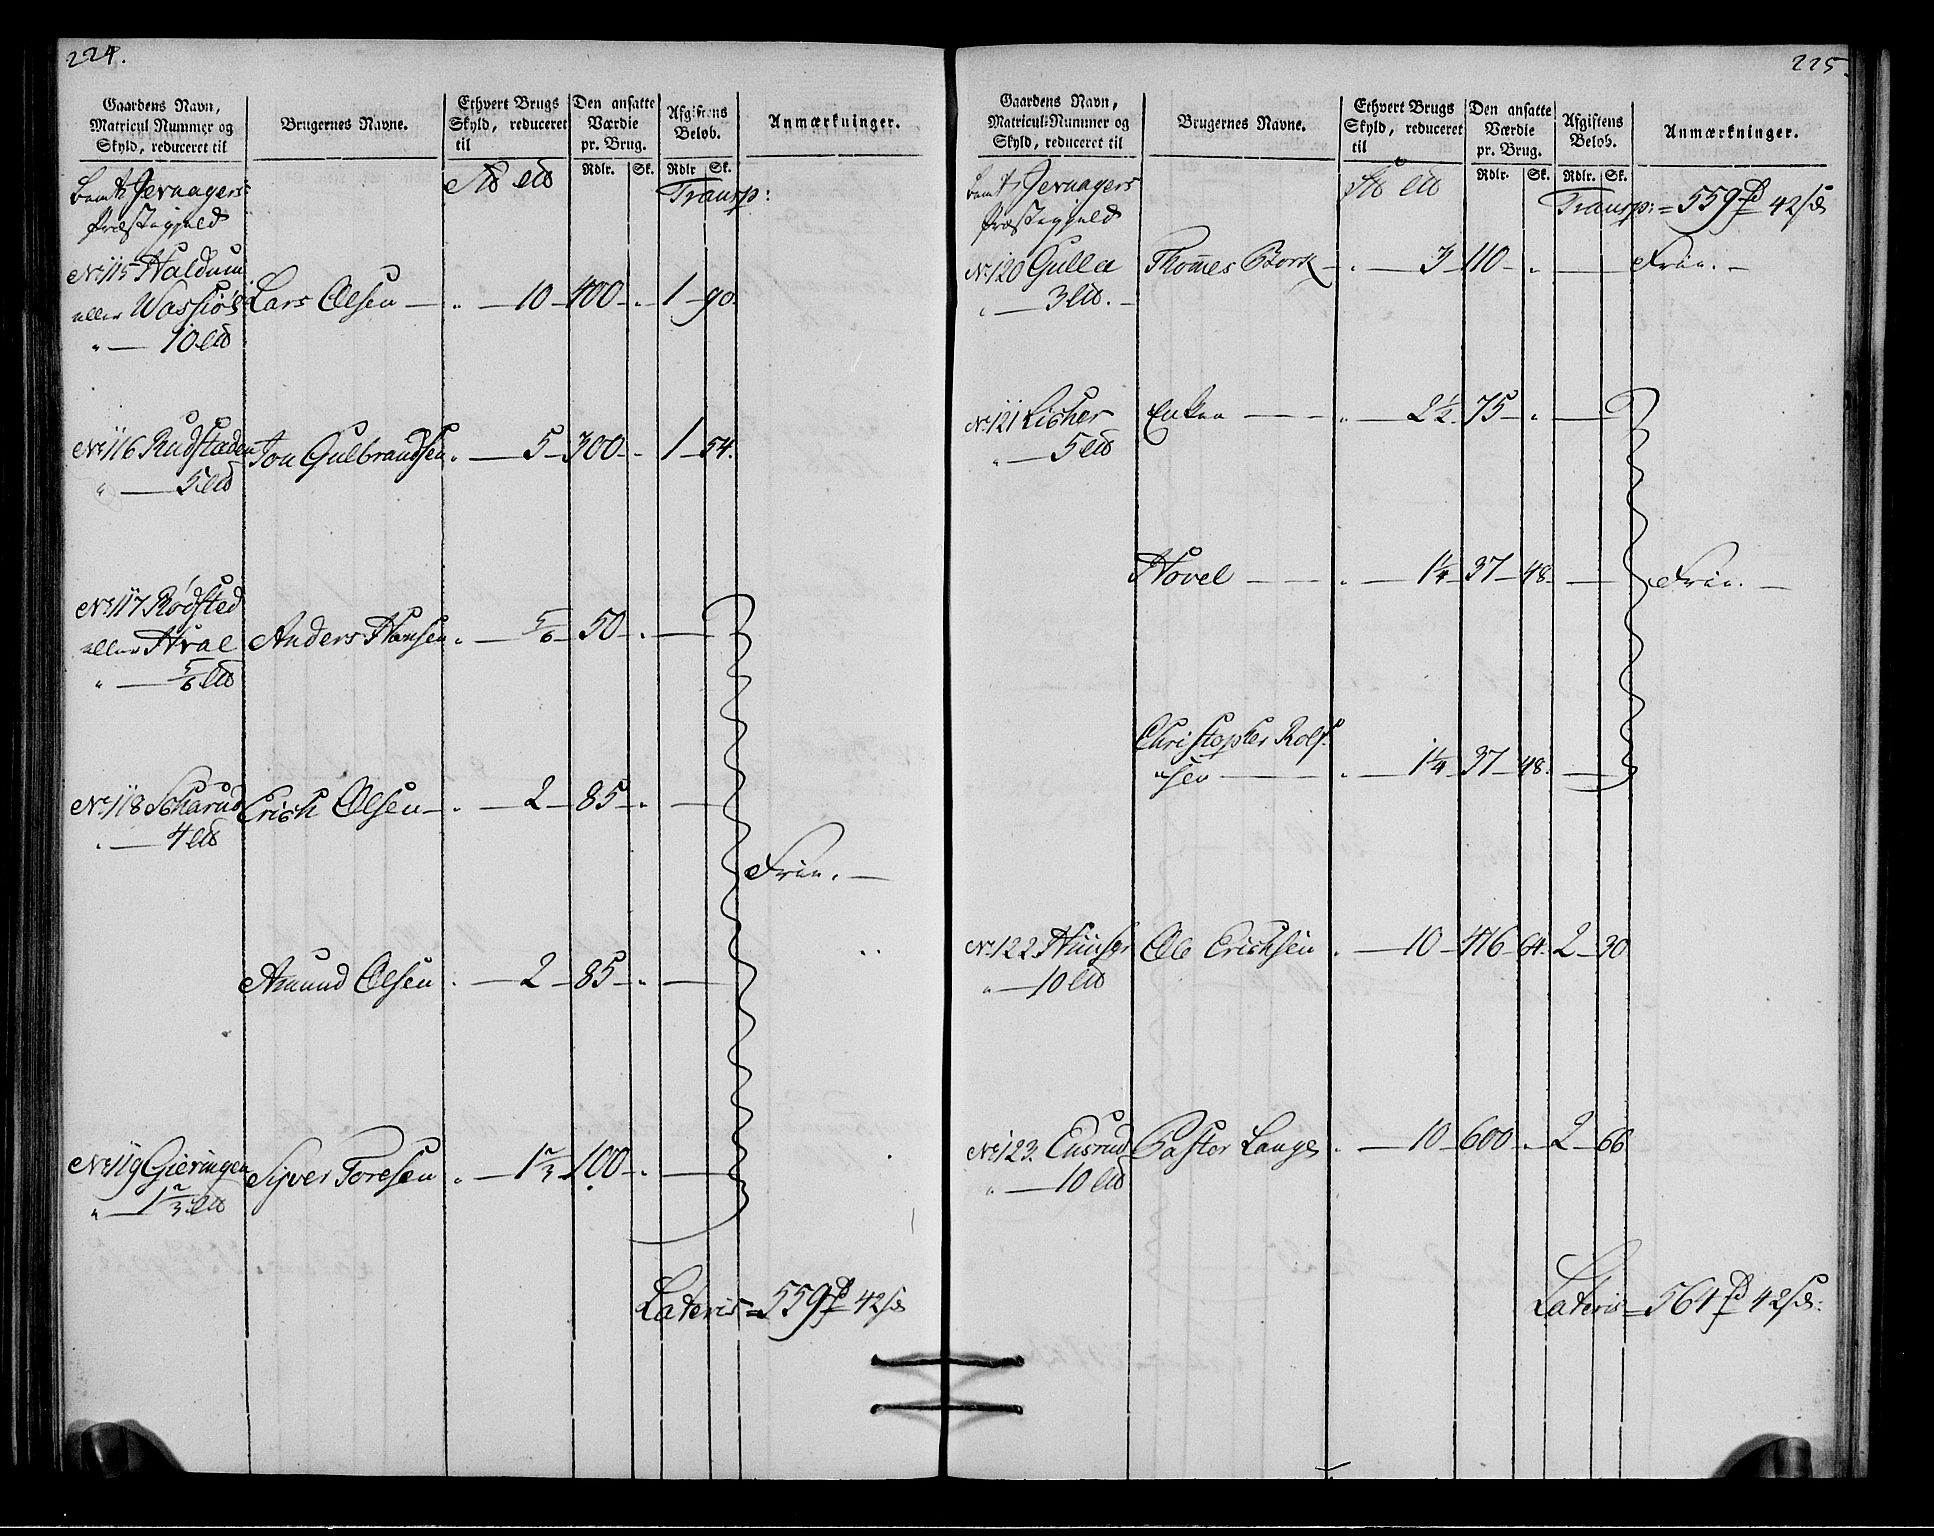 224.
Gaardens Navn,
Matricul Nummer og
Skyld, reduceret til
Brugernes Navne.
Ethvert Brugs
Skyld, reduceret
til
Den ansatte
Værdie
pr. Brug.
Afgiftens
Beløb.
Anmærkninger.
Rdlr. Sk. Rdlr Sk.
Jevnagers
Præstegjeld
Transp:
No 115 Haldum
eller Wassiø
10
Lars Olsen — " — 10 — 400 — " — 1 — 90.
No 116 Rudstaden
5
Jon Gulbrandsen " — 5 — 300 — " — 1 — 54.
No 117 Rødsted
eller Hval
5/6
Anders Hansen " — 5/6 — 50 — " —
No 118 Scharud
4
Erich Olsen — " — 2 — 85 — " —
Frie. —
Amund Olsen " — 2 — 85 — " —
No 119 Gieringen
1 2/3
Syver Toresen " — 1 2/3 — 100 — " —
Lateris = 559 42
225.
Gaardens Navn,
Matricul-Nummer og
Skyld, reduceret til
Brugernes Navne.
Ethvert Brugs
Skyld, reduceret
til
Den ansatte
Værdie
pr. Brug.
Afgiftens
Beløb.
Anmærkninger.
Rdlr. Sk. Rdlr. Sk.
Jevnagers
Præstegjeld
Transp: = 559 42
No 120 Gulla
3
Thomes Bork — " — 3 — 110 — " — Frie. —
No 121 Licher
5
Enken — " — 2 1/2 — 75 — " —
Hovel — " — 1 1/4 — 37 — 48 — Frie. —
Christopher Rolf-
sen — " — 1 1/4 — 37 — 48. —
No 122
10
Ole Erichsen " — 10 — 416 — 64 — 2 — 30
No 123. Ensrud
10
Pastor Lange " — 10 — 600 — " — 2 — 66
Lateris = 564 42